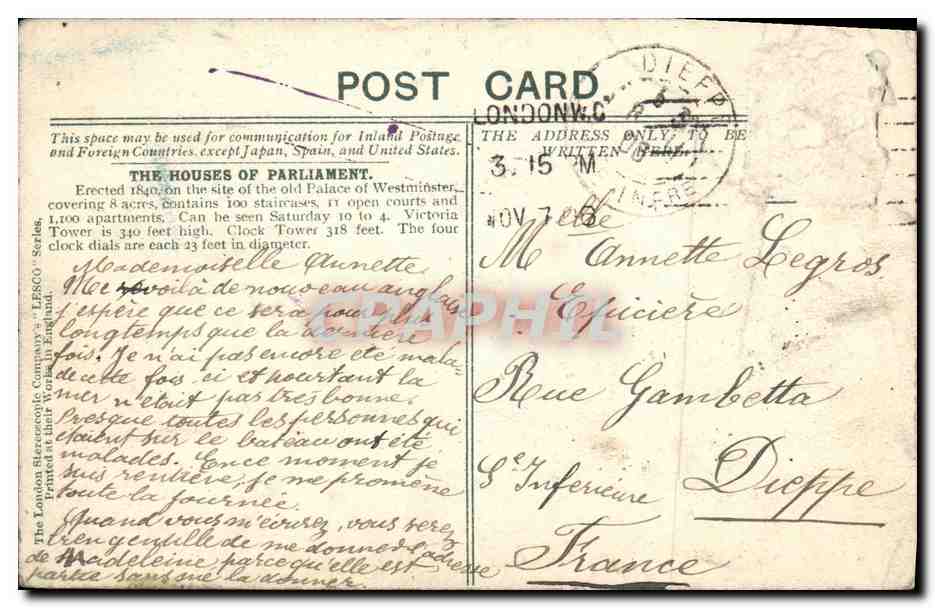 POST CARD
This space may be used for communication for Inland Postage
and Foreign Countries, except Japan, Spain, and United States.
THE HOUSES OF PARLIAMENT.
Erected 1840, on the site of the old Palace of Westminster,
covering 8 acres, contains 100 staircases, 11 open courts and
1,100 apartments. Can be seen Saturday 10 to 4. Victoria
Tower is 340 feet high. Clock Tower 318 feet. The four
clock dials are each 23 feet in diameter.
The London Stereoscopic Company's "LESCO" Series.
Printed at their Works in England.
Mademoiselle Annette
Me revoilà de nouveau anglaise
j'espère que ce sera pour plus
longtemps que la dernière
fois. Je n'ai pas encore été mala-
de cette fois ci et pourtant la
mer n'était pas très bonne.
Presque toutes les personnes qui
étaient sur le bateau ont été
malades. En ce moment je
suis rentière, je me promène
toute la journée.
Quand vous m'écrirez, vous serez
bien gentille de me donner l'adresse
de Madeleine parce qu'elle est
partie sans me la donner.
THE ADDRESS ONLY TO BE
WRITTEN HERE.
LONDON W.C
3. 15 PM
NOV 7
DIEPPE
INFRE
Melle
M Annette Legros
Epicière
Rue Gambetta
Se Inférieure Dieppe
France
CPAPHIL